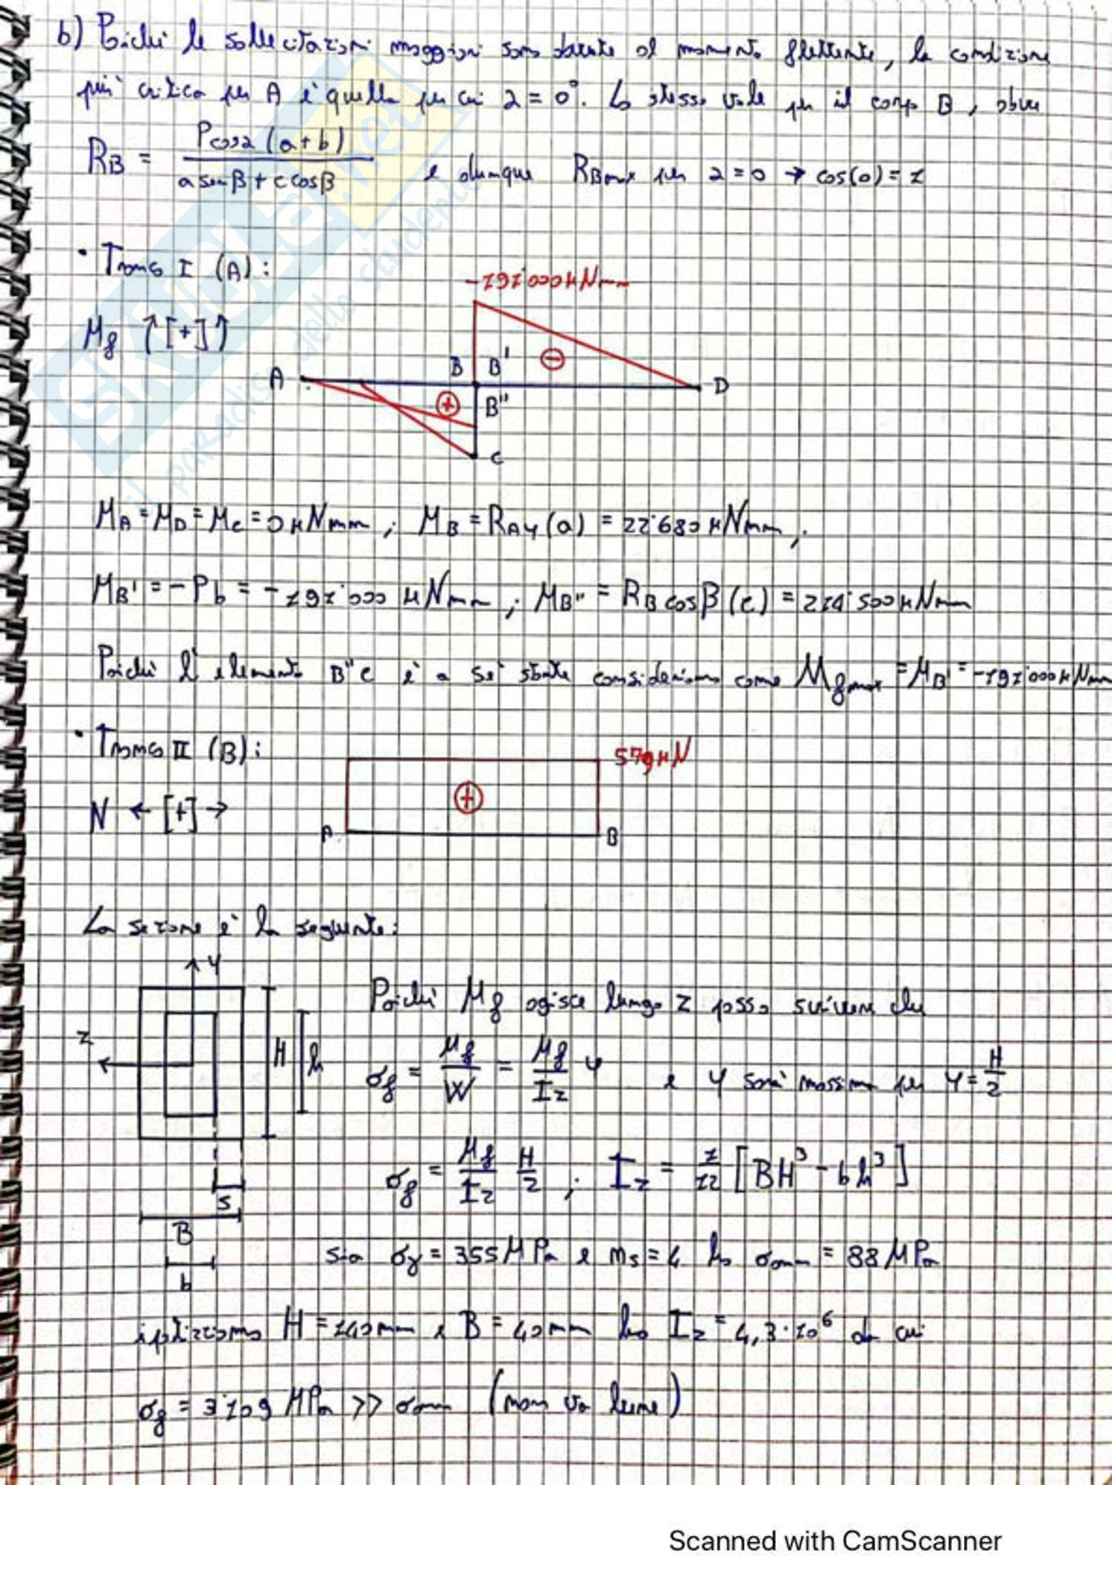 b) Poiché le sollecitazioni maggiori sono dovute al momento flettente, la condizione
più critica per A è quella per cui α = 0°. Lo stesso vale per il corpo B, dove
RB = Pcosα (a+b) / a senβ + c cosβ e dunque RBmax per α = 0 → cos(0) = 1
• Tronco I (A):
-191'000 kNmm
Mf ↑[+]↑
A B B' ⊖ D
⊕ B"
C
MA = MD = MC = 0 kNmm ; MB = RAy (a) = 22'680 kNmm ;
MB' = -Pb = -191'000 kNmm ; MB" = RB cosβ (c) = 214'500 kNmm
Poiché l'elemento B"C è a sé stante consideriamo come Mfmax = MB' = -191'000 kNmm
• Tronco II (B):
579 kN
N ← [+] →
⊕
A B
La sezione è la seguente:
y
z
H h
s
B
b
Poiché Mf agisce lungo z posso scrivere che
σf = Mf / W = Mf / Iz y e y sarà massimo per y = H/2
σf = Mf / Iz H/2 ; Iz = 1/12 [BH³ - bh³]
sia σy = 355 MPa e ms = 4 ho σamm = 88 MPa
ipotizziamo H = 140mm e B = 40mm ho Iz = 4,3·10⁶ da cui
σf = 3'109 MPa >> σamm (non va bene)
Scanned with CamScanner